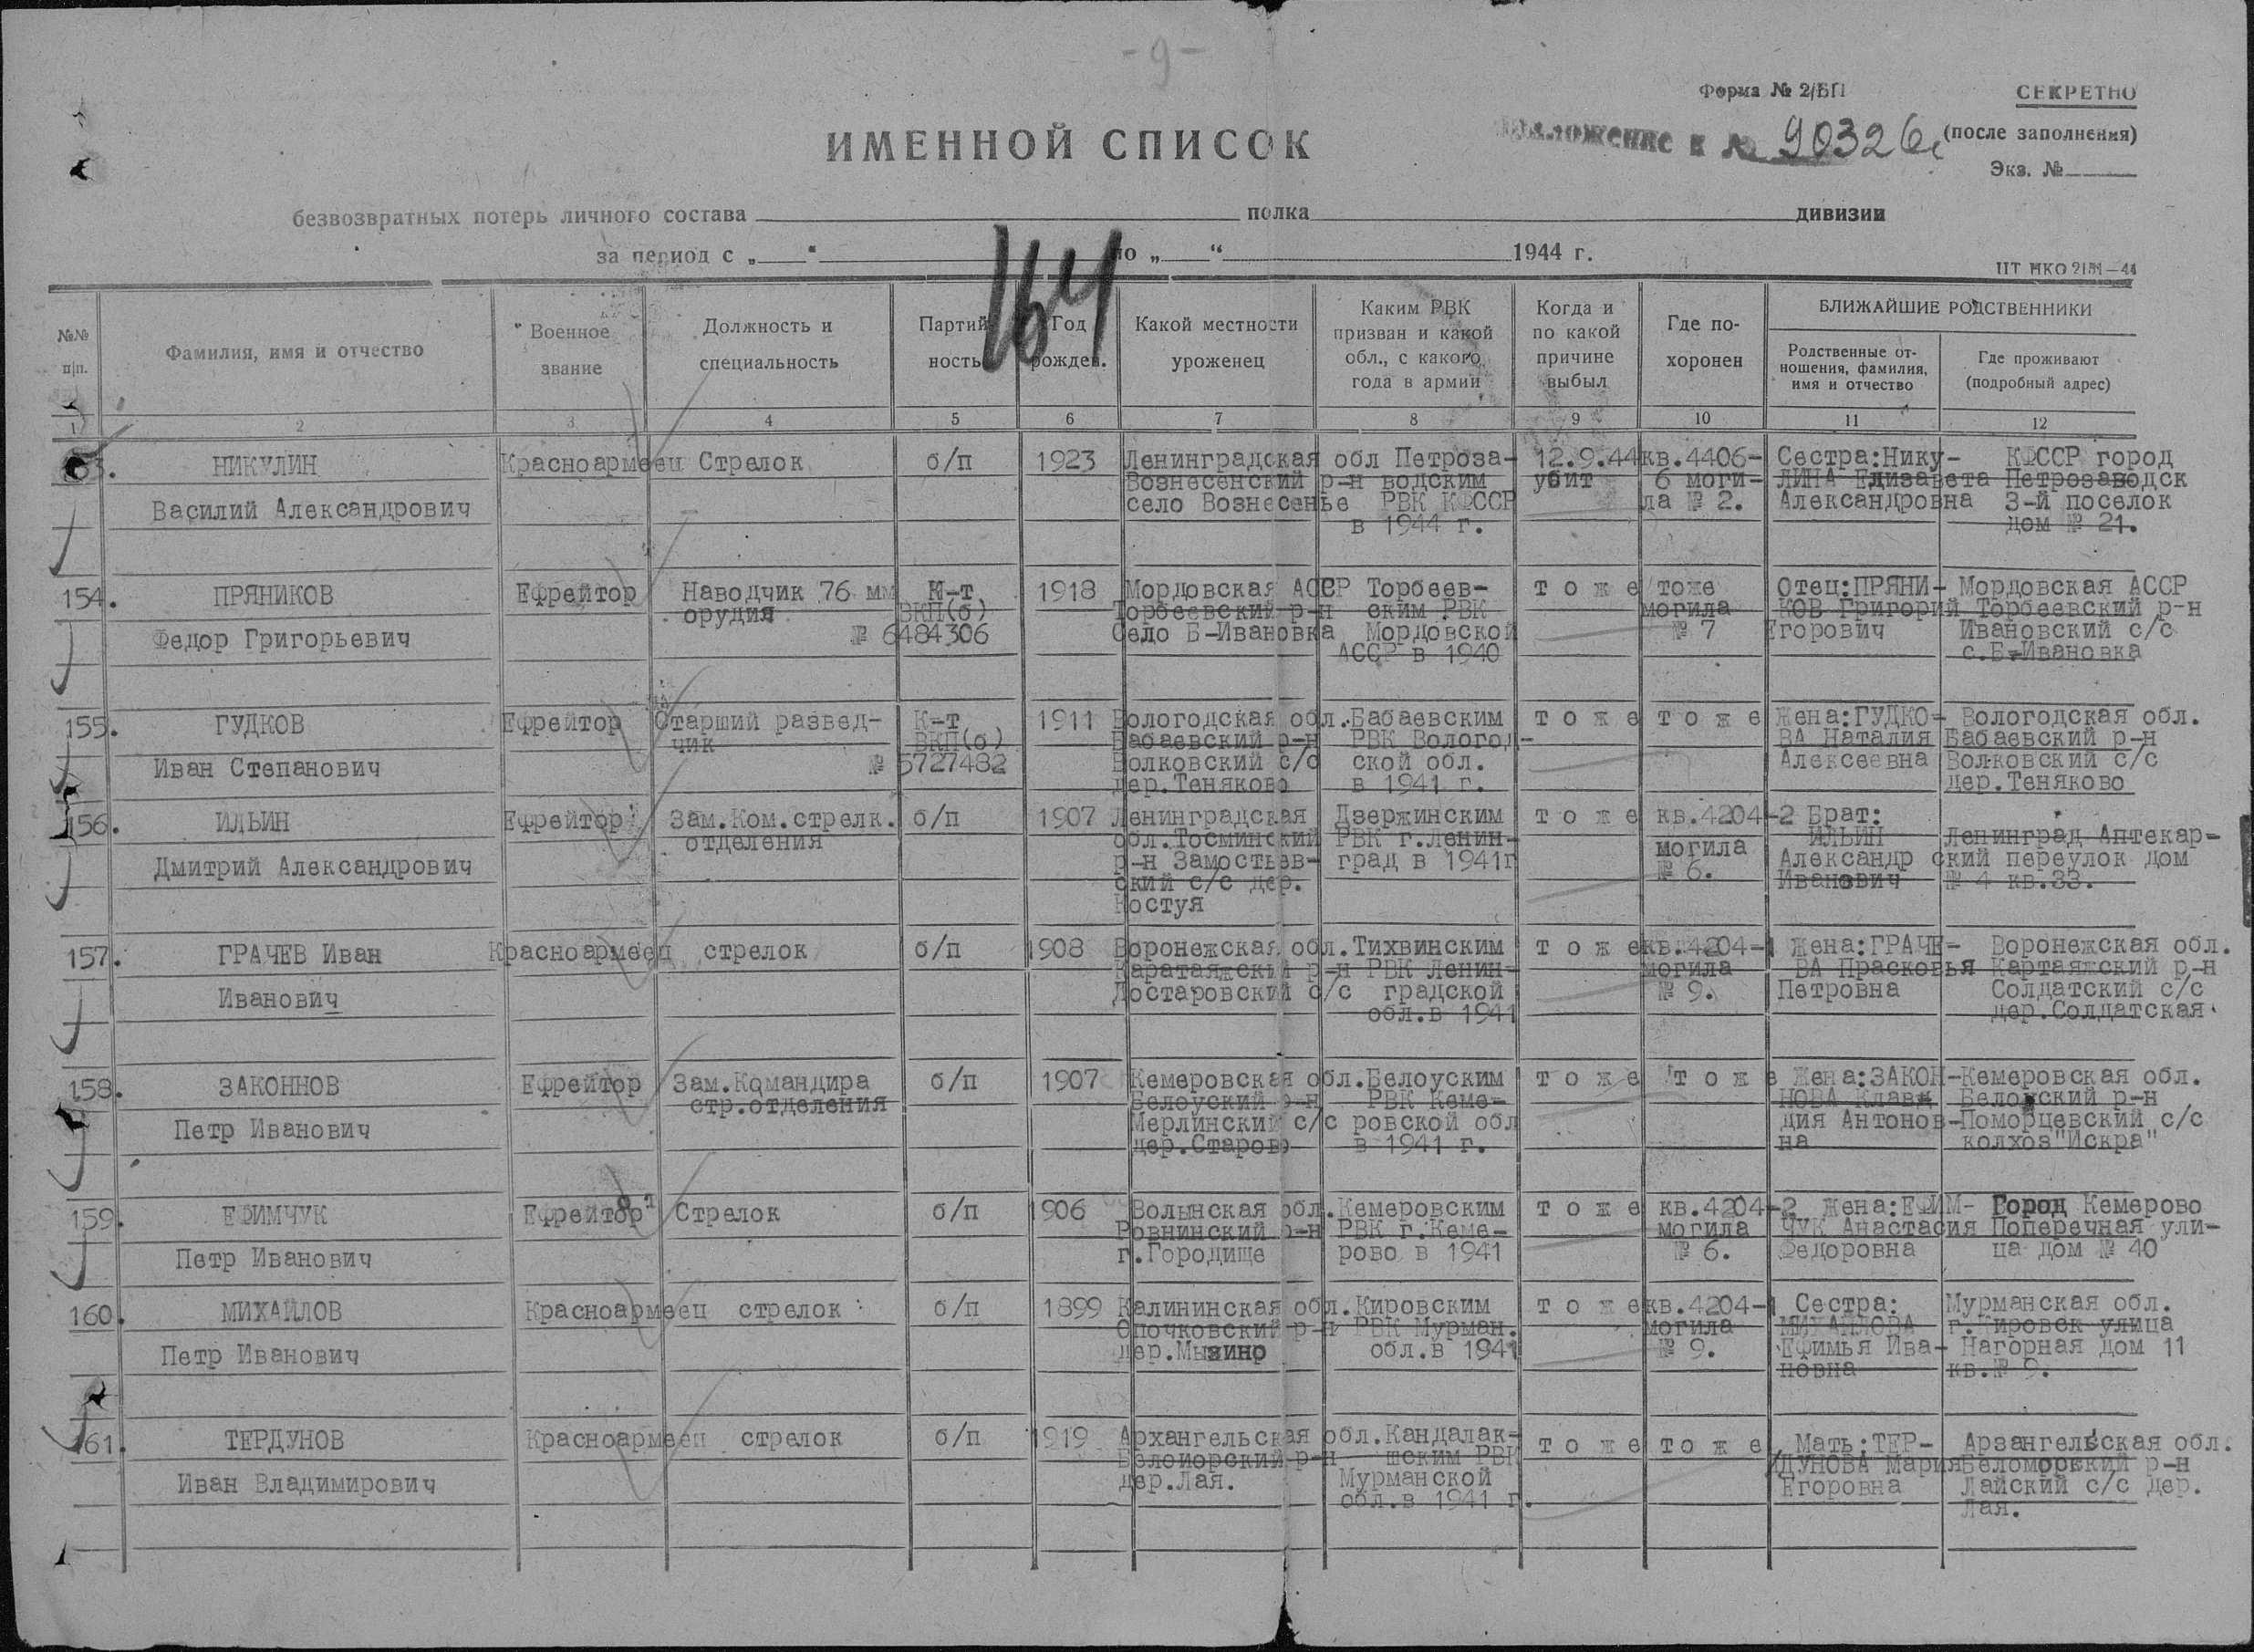 - 9 -
Форма № 2/БП
СЕКРЕТНО
ИМЕННОЙ СПИСОК
Приложение к № 90326с
(после заполнения)
Экз. №
безвозвратных потерь личного состава полка дивизии
за период с „ “ по „ “ 1944 г.
164
№№ п|п.
Фамилия, имя и отчество
Военное звание
Должность и специальность
Партийность
Год рожден.
Какой местности уроженец
Каким РВК призван и какой обл., с какого года в армии
Когда и по какой причине выбыл
Где похоронен
БЛИЖАЙШИЕ РОДСТВЕННИКИ
Родственные отношения, фамилия, имя и отчество
Где проживают (подробный адрес)
1 2 3 4 5 6 7 8 9 10 11 12
НИКУЛИН Красноармеец Стрелок б/п 1923 Ленинградская обл Петроза- 12.9.44 кв.4406- Сестра:Нику- КФССР город
Вознесенский р-н водским убит 6 моги- ЛИНА Елизавета Петрозаводск
Василий Александрович село Вознесенье РВК КФССР ла № 2. Александровна 3-й поселок
в 1944 г. дом № 21.
154. ПРЯНИКОВ Ефрейтор Наводчик 76 мм К-т 1918 Мордовская АССР Торбеев- т о ж е тоже Отец:ПРЯНИ- Мордовская АССР
орудия ВКП(б) Торбеевский р-н ским РВК могила КОВ Григорий Торбеевский р-н
Федор Григорьевич № 6484306 Село Б-Ивановка Мордовской № 7 Егорович Ивановский с/с
АССР в 1940 с.Б-Ивановка
155. ГУДКОВ Ефрейтор Старший развед- К-т 1911 Вологодская обл.Бабаевским т о ж е т о ж е Жена:ГУДКО- Вологодская обл.
чик ВКП(б) Бабаевский р-н РВК Вологод- ВА Наталия Бабаевский р-н
Иван Степанович № 5727482 Волковский с/с ской обл. Алексеевна Волковский с/с
дер.Теняково в 1941 г. дер.Теняково
156. ИЛЬИН Ефрейтор Зам.Ком.стрелк. б/п 1907 Ленинградская Дзержинским т о ж е кв.4204-2 Брат:
отделения обл.Тосминский РВК г.Ленин- могила ИЛЬИН Ленинград Аптекар-
Дмитрий Александрович р-н Замостьев- град в 1941г № 6. Александр ский переулок дом
ский с/с дер. Иванович № 4 кв.33.
Костуя
157. ГРАЧЕВ Иван Красноармеец стрелок б/п 1908 Воронежская обл.Тихвинским т о ж е кв.4204-1 Жена:ГРАЧЕ- Воронежская обл.
Каратаяжскый р-н РВК Ленин- могила ВА Прасковья Картаяжский р-н
Иванович Достаровский с/с градской № 9. Петровна Солдатский с/с
обл.в 1941 дер.Солдатская
158. ЗАКОННОВ Ефрейтор Зам.Командира б/п 1907 Кемеровская обл.Белоуским т о ж е т о ж е Жена:ЗАКОН- Кемеровская обл.
стр.отделения Белоуский р-н РВК Кеме- НОВА Клав- р-н
Петр Иванович Мерлинский с/с ровской обл дия Антонов- Поморцевский с/с
дер.Старово в 1941 г. на колхоз"Искра"
159. ЕФИМЧУК Ефрейтор Стрелок б/п 1906 Волынская обл.Кемеровским т о ж е кв.4204-2 Жена:ЕФИМ- Город Кемерово
Ровнинский р-н РВК г.Кеме- могила ЧУК Анастасия Поперечная ули-
Петр Иванович г.Городище рово в 1941 № 6. Федоровна ца дом № 40
160. МИХАЙЛОВ Красноармеец стрелок б/п 1899 Калининская обл.Кировским т о ж е кв.4204-1 Сестра: Мурманская обл.
Опочковский р-н РВК Мурман. могила МИХАЙЛОВА г.Кировск улица
Петр Иванович обл.в 1941 № 9. Ефимья Ива- Нагорная дом 11
новна кв.№ 9.
161. ТЕРДУНОВ Красноармеец стрелок б/п 1919 Архангельская обл.Кандалак- т о ж е т о ж е Мать:ТЕР- Арзангельская обл.
р-н шским РВК ДУНОВА Мария Беломорский р-н
Иван Владимирович дер.Лая. Мурманской Егоровна Лайский с/с дер.
обл.в 1941 г. Лая.